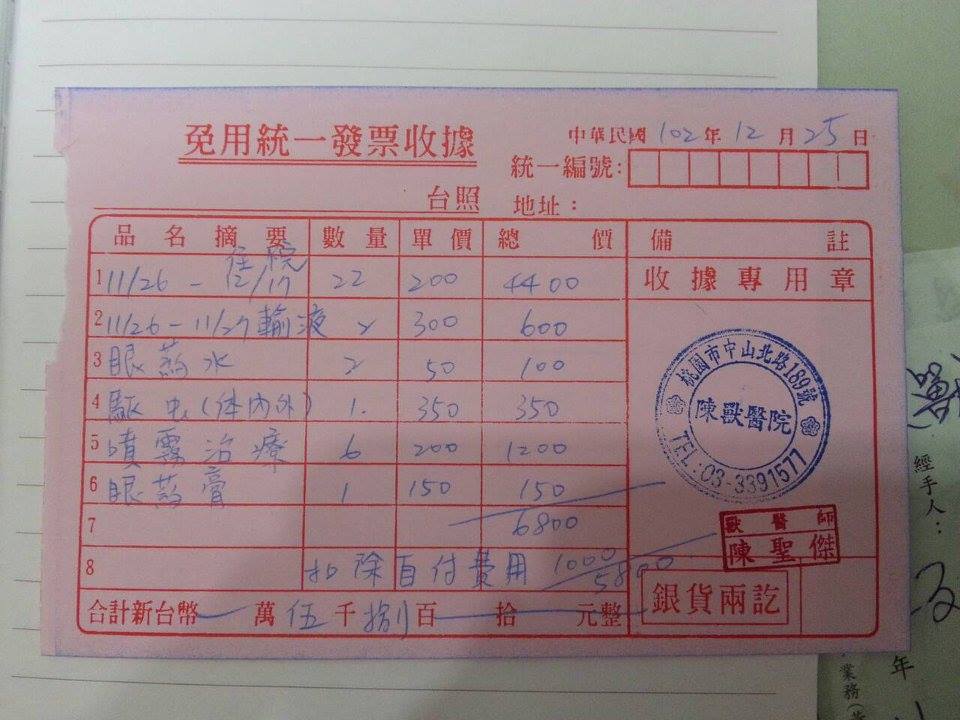 免用統一發票收據
中華民國 102 年 12 月 25 日
統一編號:
台照 地址:
品名摘要 數量 單價 總價 備註
收據專用章
1 11/26 - 12/17 住院 22 200 4400
2 11/26 - 11/27 輸液 2 300 600
3 眼葯水 2 50 100
4 驅虫(体內外) 1. 350 350
5 噴霧治療 6 200 1200
6 眼葯膏 1 150 150
7 6800
8 扣除自付費用 1000
5800
合計新台幣 萬 伍 千 捌 百 拾 元整
銀貨兩訖
桃園市中山北路189號
陳獸醫院
TEL:03-3391577
獸醫師
陳聖傑
經手人:
年
業務